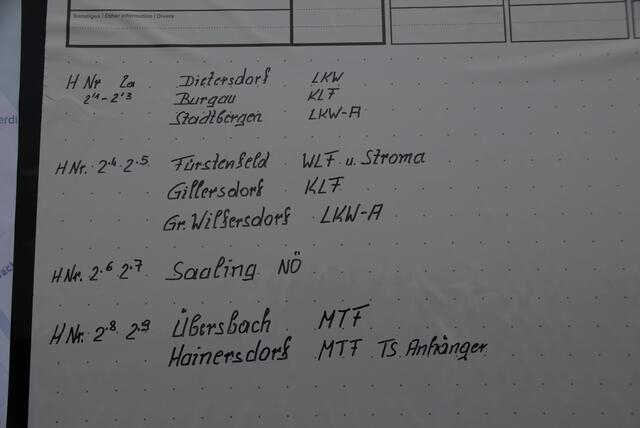 Sonstiges / Other information / Divers
H Nr 2a Dietersdorf LKW
2'1 - 2'3 Burgau KLF
Stadtbergen LKW-A
H Nr. 2.4 2.5 Fürstenfeld WLF u. Stroma
Gillersdorf KLF
Gr. Wilfersdorf LKW-A
H Nr. 2.6 2.7 Saaling NÖ
H Nr. 2.8 2.9 Übersbach MTF
Hainersdorf MTF TS. Anhänger